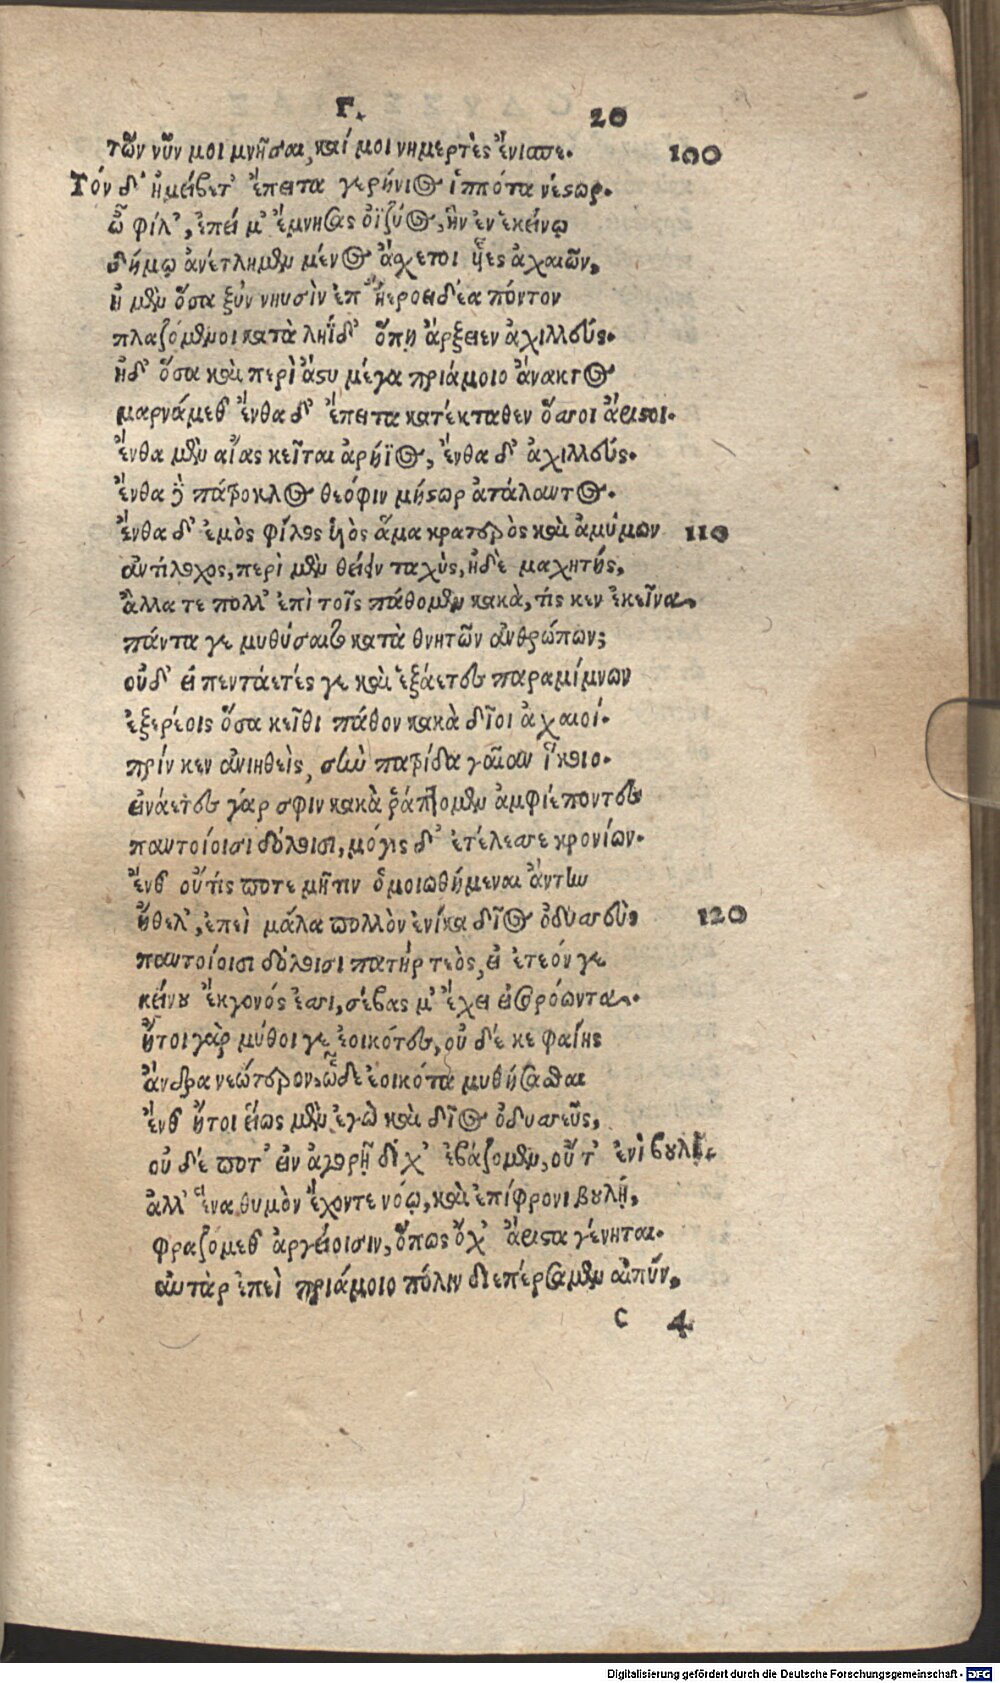 Γ. 20
τῶν νῦν μοι μνῆσαι, καί μοι νημερτὲς ἔνισπε. 100
Τόν δ' ἠμείβετ' ἔπειτα γερήνιος ἱππότα νέστωρ.
ὦ φίλ', ἐπεί μ' ἔμνησας ὀϊζύος, ἣν ἐν ἐκείνῳ
δήμῳ ἀνέτλημεν μένος ἄσχετοι υἷες ἀχαιῶν,
ἠ μὲν ὅσα ξὺν νηυσὶν ἐπ' ἠεροειδέα πόντον
πλαζόμενοι κατὰ ληΐδ' ὅπῃ ἄρξειεν ἀχιλλεύς.
ἠδ' ὅσα καὶ περὶ ἄστυ μέγα πριάμοιο ἄνακτος
μαρνάμεθ' ἔνθα δ' ἔπειτα κατέκταθεν ὅσσοι ἄριστοι.
ἔνθα μὲν αἴας κεῖται ἀρήϊος, ἔνθα δ' ἀχιλλεύς.
ἔνθα δὲ πάτροκλος θεόφιν μήστωρ ἀτάλαντος.
ἔνθα δ' ἐμὸς φίλος υἱὸς ἅμα κρατερὸς καὶ ἀμύμων 110
ἀντίλοχος, περὶ μὲν θείειν ταχὺς, ἠδὲ μαχητής,
ἄλλα τε πολλ' ἐπὶ τοῖς πάθομεν κακὰ, τίς κεν ἐκεῖνα
πάντα γε μυθήσαιτο κατὰ θνητῶν ἀνθρώπων;
οὐδ' εἰ πεντάετές γε καὶ ἑξάετες παραμίμνων
ἐξερέοις ὅσα κεῖθι πάθον κακὰ δῖοι ἀχαιοί.
πρίν κεν ἀνιηθεὶς, σὴν πατρίδα γαῖαν ἵκοιο.
εἰνάετες γάρ σφιν κακὰ ῥάπτομεν ἀμφιέποντες
παντοίοισι δόλοισι, μόγις δ' ἐτέλεσσε κρονίων.
ἔνθ' οὔτις ποτε μῆτιν ὁμοιωθήμεναι ἄντην
ἤθελ', ἐπεὶ μάλα πολλὸν ἐνίκα δῖος ὀδυσσεὺς 120
παντοίοισι δόλοισι πατὴρ τεὸς, εἰ ἐτεόν γε
κείνου ἔκγονός ἐσσι, σέβας μ' ἔχει εἰσορόωντα.
ἤτοι γὰρ μύθοι γε ἐοικότες, οὐ δέ κε φαίης
ἄνδρα νεώτερον, ὧδε ἐοικότα μυθήσασθαι
ἔνθ' ἤτοι εἵως μὲν ἐγὼ καὶ δῖος ὀδυσσεῦς,
οὐ δέ ποτ' εἰν ἀγορῇ δίχ' ἐβάζομεν, οὔτ' ἐνὶ βουλῇ.
ἀλλ' ἕνα θυμὸν ἔχοντε νόῳ, καὶ ἐπίφρονι βουλῇ,
φραζόμεθ' ἀργείοισιν, ὅπως ὄχ' ἄριστα γένηται.
αὐτὰρ ἐπεὶ πριάμοιο πόλιν διεπέρσαμεν αἰπύν,
C 4
Digitalisierung gefördert durch die Deutsche Forschungsgemeinschaft - DFG